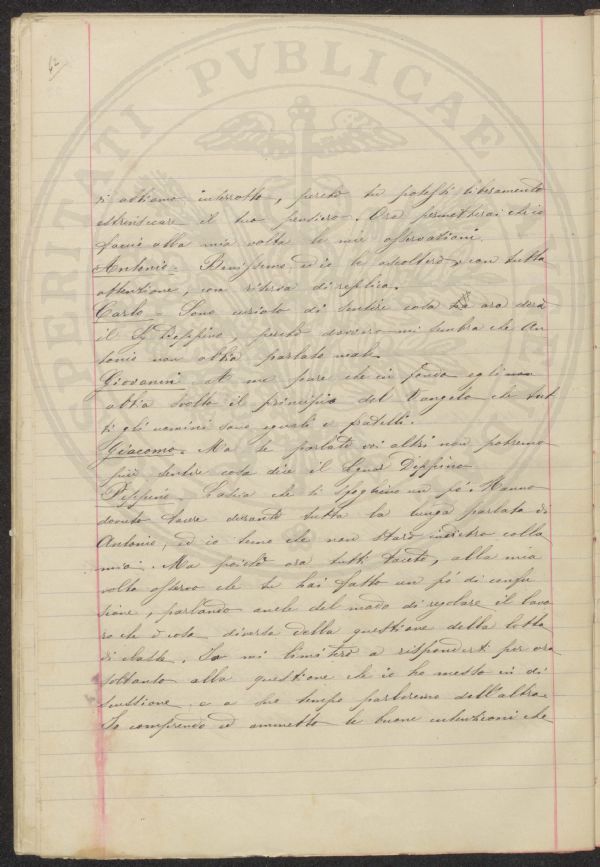 42
PROSPERITATI PVBLICAE AVGENDAE
ti abbiamo interrotto, perchè tu potessi liberamente
estrinsicare il tuo pensiero. Ora permetterai ch'io
facci alla mia volta le mie osservazioni.
Antonio = Benissimo, ed io le ascolterò, con tutta
attenzione, con riserva di replica.
Carlo = Sono curioso di sentire cosa ora dirà
il Sig Peppino, perchè davvero mi sembra che An
tonio non abbia parlato male.
Giovanni A me pare che in fondo egli
abbia svolto il principio del Vangelo che tut
ti gli uomini sono eguali e fratelli.
Giacomo. Ma se parlate voi altri non potremo
più sentire cosa dice il Signor Peppino
Peppino = Lascia che si sfoghino un pó. Hanno
dovuto tacere durante tutta la lunga parlata di
Antonio, ed io temo che non starò indietro colla
mia. Ma poichè ora tutti tacete, alla mia
volta osservo che tu hai fatto un pó di confu
sione, parlando anche del modo di regolare il lavo
ro che è cosa diversa della questione della lotta
di classe. Io mi limiterò a risponderti per ora
soltanto alla questione che io ho messo in di
scussione e a suo tempo parleremo dell'altra.
Io comprendo ed ammetto le buone intenzioni che